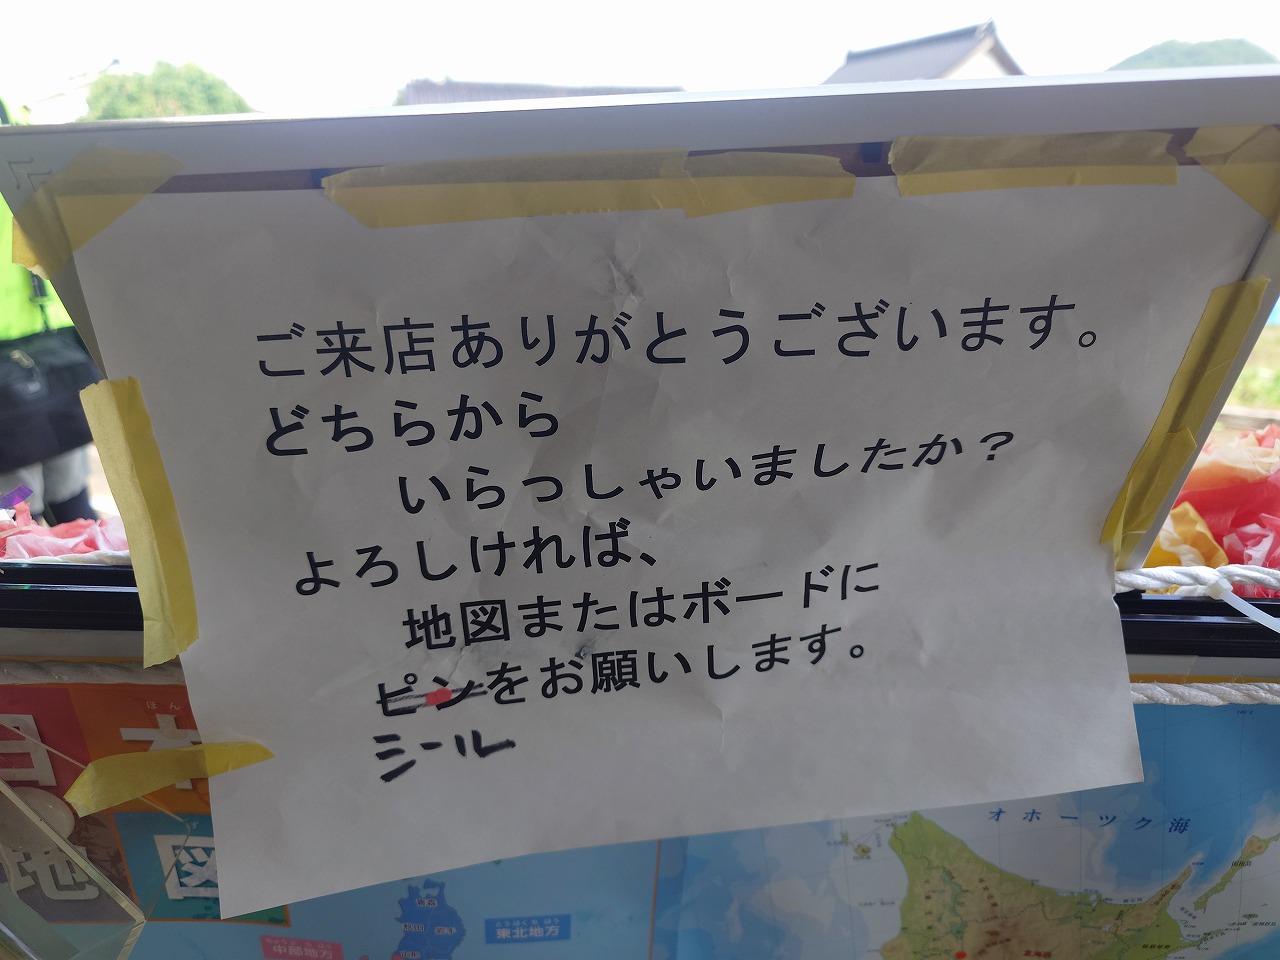 ご来店ありがとうございます。
どちらから
いらっしゃいましたか？
よろしければ、
地図またはボードに
ピンをお願いします。
シール
日本
地図
ほん
オホーツク海
東北地方
中部地方
青森
秋田 岩手
北海道